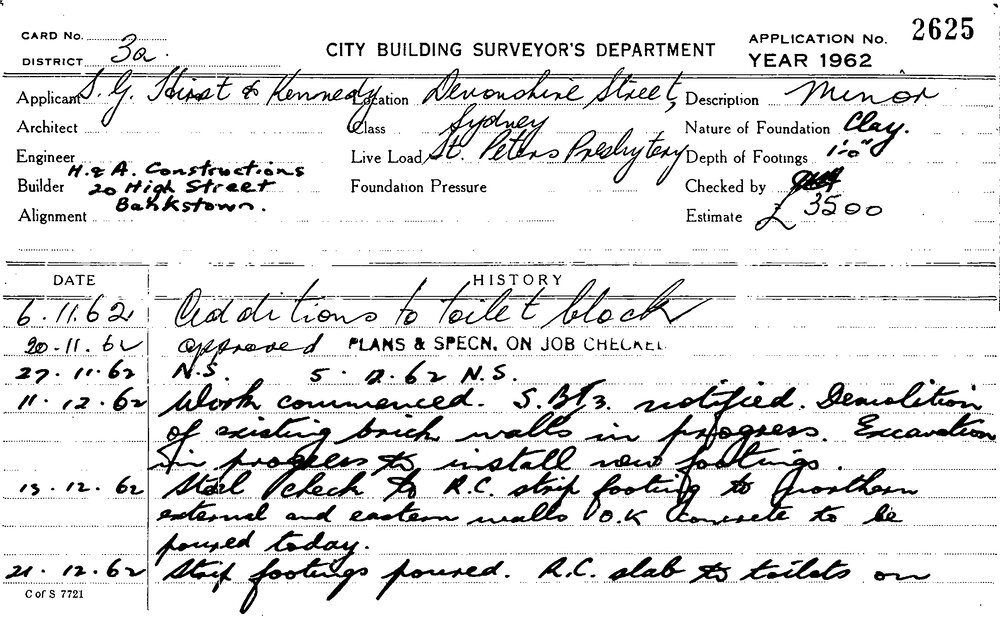 CARD No.
2625
DISTRICT 3a.
CITY BUILDING SURVEYOR'S DEPARTMENT
APPLICATION No.
YEAR 1962
Applicant S. G. Hirst & Kennedy Location Devonshire Street, Description Minor
Architect Class Sydney Nature of Foundation Clay.
Engineer Live Load St. Peters Presbytery Depth of Footings 1'-0"
Builder H. & A. Constructions Foundation Pressure Checked by
20 High Street
Bankstown.
Alignment Estimate £ 3500
DATE HISTORY
6.11.62 Additions to toilet block
20.11.62 approved PLANS & SPECN. ON JOB CHECKED
27.11.62 N.S. 5.12.62 N.S.
11.12.62 Work commenced. notified. Demolition
of existing brick walls in progress. Excavation
in progress to install new footings.
13.12.62 Steel check to R.C. strip footing to northern
external and eastern walls O.K concrete to be
poured today.
21.12.62 Strip footings poured. R.C. slab to toilets on
C of S 7721